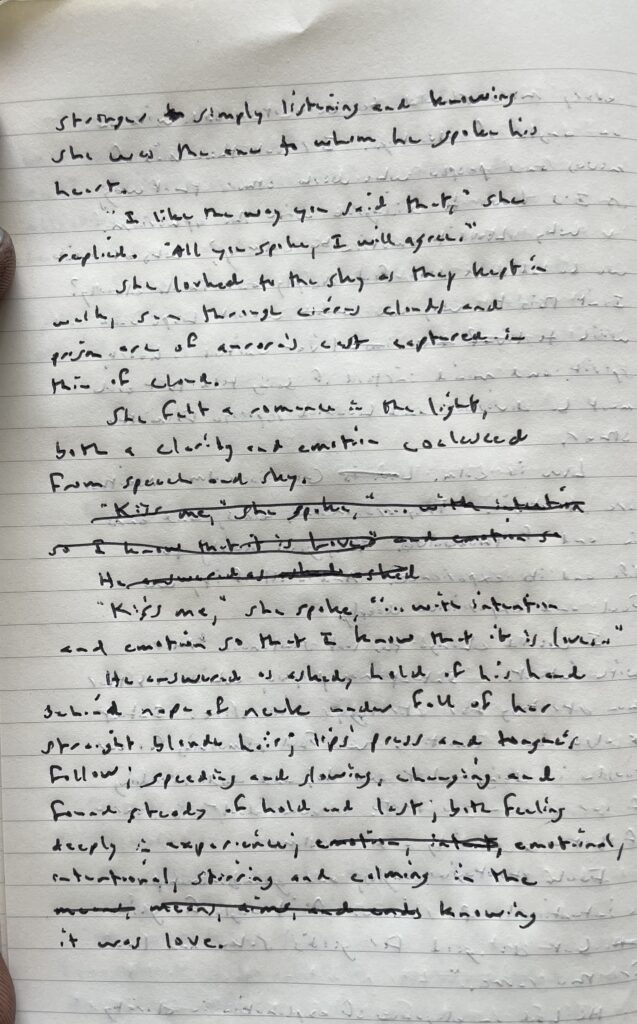 stronger simply listening and knowing
she was the one to whom he spoke his
heart.
"I like the way you said that," she
replied. "All you spoke, I will agree."
She looked to the sky as they kept in
walk, sun through cirrus clouds and
prism arc of aurora's cast captured in
thin of cloud.
She felt a romance in the light,
both a clarity and emotion coalesced
from speech and sky.
"Kiss me," she spoke, "... with intention
so I know that it is love," and emotion so
He answered as asked
"Kiss me," she spoke, "... with intention
and emotion so that I know that it is love."
He answered as asked, hold of his hand
behind nape of neck under fall of her
straight blonde hair; lips press and tongues
follow; speeding and slowing, changing and
found steady of hold and last; both feeling
deeply in experience; emotion, intent, emotional,
intentional, stirring and calming in the
means, aims, and ends knowing
it was love.